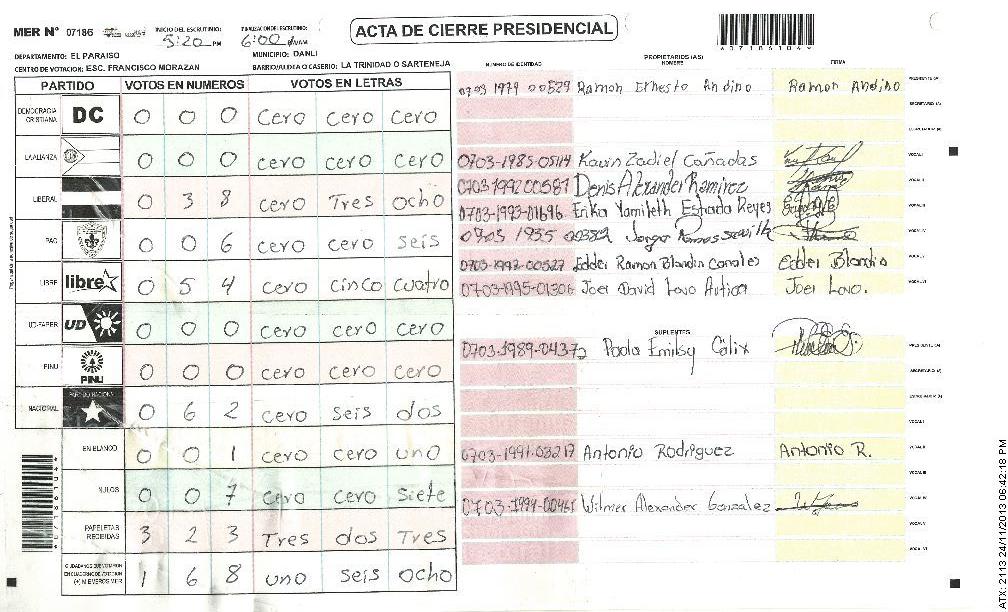 MER Nº 07186
INICIO DEL ESCRUTINIO: 5:20 PM
FINALIZACION DEL ESCRUTINIO: 6:00
ACTA DE CIERRE PRESIDENCIAL
DEPARTAMENTO: EL PARAISO
MUNICIPIO: DANLI
CENTRO DE VOTACION: ESC. FRANCISCO MORAZAN
BARRIO/ALDEA O CASERIO: LA TRINIDAD O SARTENEJA
PARTIDO VOTOS EN NUMEROS VOTOS EN LETRAS
DEMOCRACIA CRISTIANA DC 0 0 0 cero cero cero
LA ALIANZA 0 0 0 cero cero cero
LIBERAL 0 3 8 cero Tres ocho
PAC 0 0 6 cero cero seis
LIBRE libre 0 5 4 cero cinco cuatro
UD-FAPER UD 0 0 0 cero cero cero
PINU PINU 0 0 0 cero cero cero
NACIONAL PARTIDO NACIONAL 0 6 2 cero seis dos
EN BLANCO 0 0 1 cero cero uno
NULOS 0 0 7 cero cero siete
PAPELETAS RECIBIDAS 3 2 3 Tres dos Tres
CIUDADANOS QUE VOTARON EN CUADERNO DE VOTACION (+) MIEMBROS MER 1 6 8 uno seis ocho
PROPIETARIOS (AS)
NUMERO DE IDENTIDAD NOMBRE FIRMA
0703 1979 00529 Ramon Ernesto Andino Ramon Andino PRESIDENTE (A)
SECRETARIO (A)
ESCRUTADOR (A)
0703-1985-05114 Kavin Zadiel Cañadas VOCAL I
0703 1992 00587 Denis Alexander Ramirez VOCAL II
0703-1993-01696 Erika Yamileth Estrada Reyes VOCAL III
0703 1955 Jorge Ramos VOCAL IV
0703-1992-00527 Edder Ramon Blandin Canales Edder Blandin VOCAL V
0703-1995-01306 Joel David Lovo Joel Lovo. VOCAL VI
SUPLENTES
0703-1989-0437 Paola Emilsy Calix PRESIDENTE (A)
SECRETARIO (A)
ESCRUTADOR (A)
VOCAL I
0703-1991-03217 Antonio Rodriguez Antonio R. VOCAL II
VOCAL III
0703-1994-00465 Wilmer Alexander Gonzalez VOCAL IV
VOCAL V
VOCAL VI
ATX: 2113 24/11/2013 06:42:18 PM